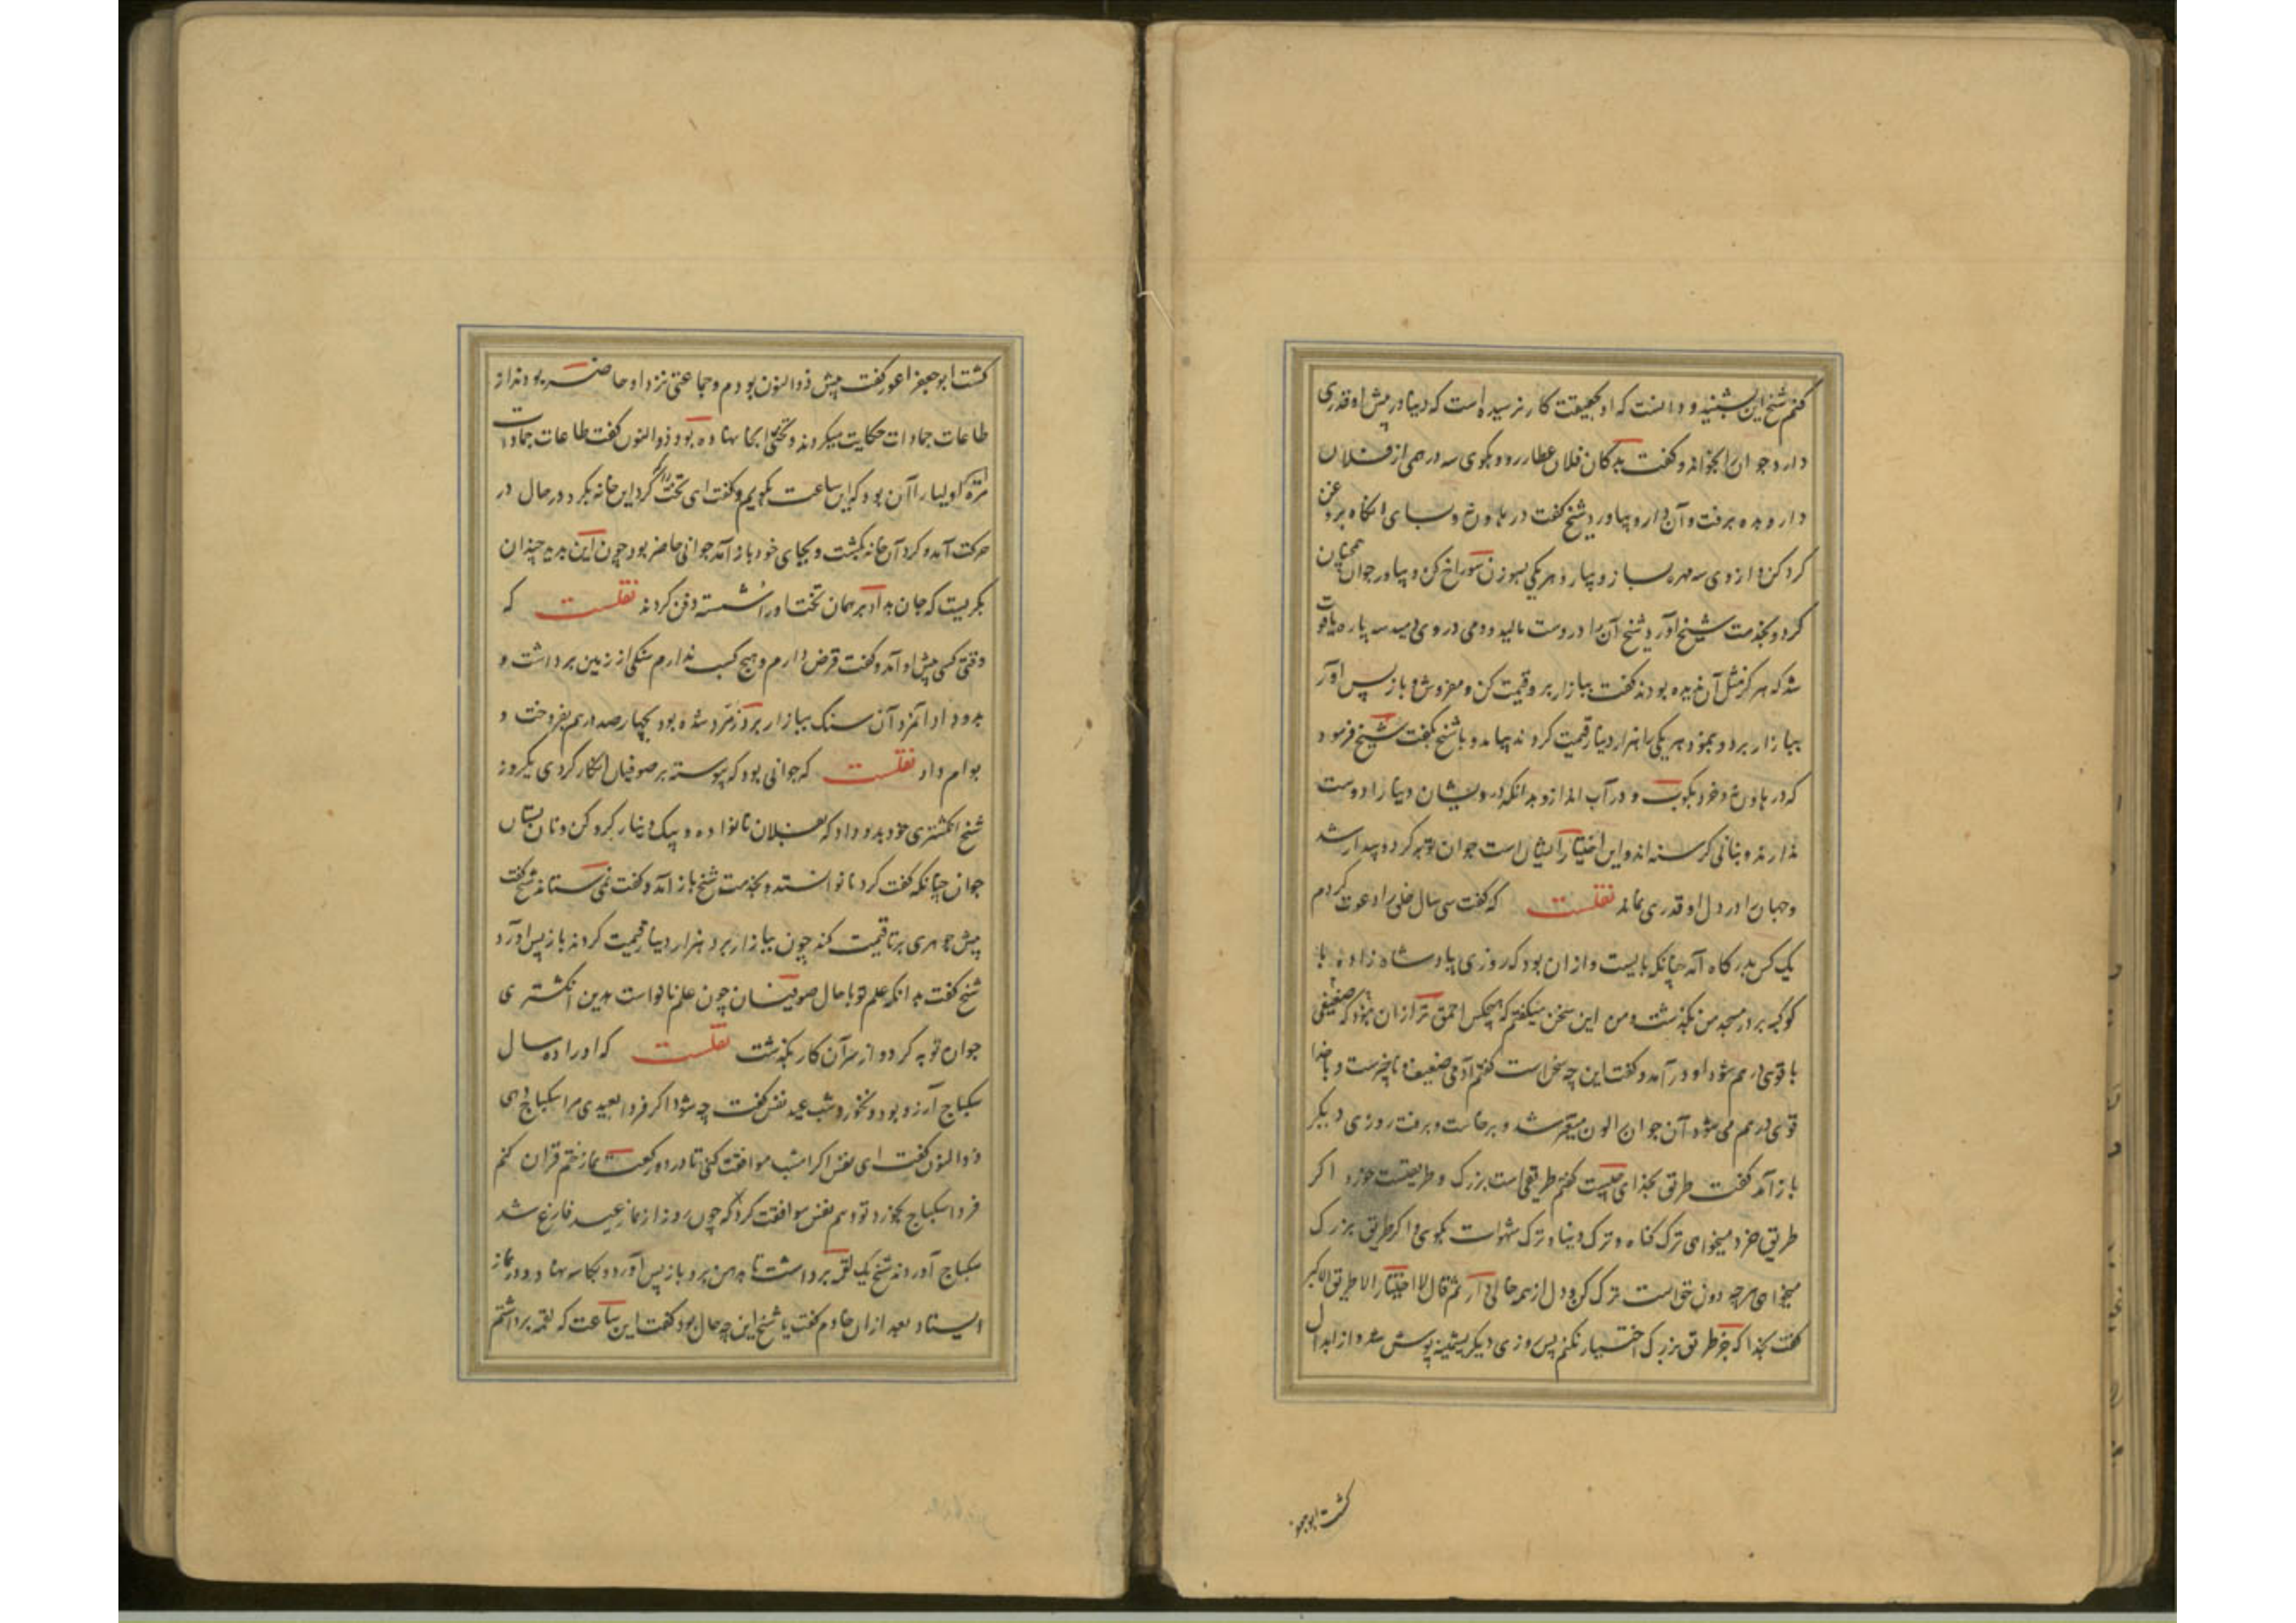 کنم شیخ این بشنید و دانست که او بحقیقت کار نرسیده است که دینا در پیش او قدری
دارد جوان را بخواند و گفت بدکان فلان عطار رو و بکوی سه درهمی از فلان
دارو بده برفت و آن دارو بیاورد شیخ گفت در هاون و بسای آنگاه بروغن
کرد کن و از وی سه مهره بساز و بیار و هر یکی بسوزن سوراخ کن و بیاور جوان همچنان
کرد و بخدمت شیخ آورد شیخ آن را در دست مالید و دمی در وی دمید سه پاره یاقوت
شد که هرگز مثل آن ندیده بودند گفت ببازار بر و قیمت کن و مفروش و باز پس آور
ببازار برد و بنمود هر یکی را هزار دینار قیمت کردند بیامد و با شیخ بگفت شیخ فرمود
که در هاون خرد بکوب و در آب انداز و بدانکه درویشان دنیا را دوست
ندارند و بنانی گرسنه اند و این اختیار ایشان است جوان توبه کرد و بیدار شد
و جهان را در دل او قدری نماند نقلست که گفت سی سال خلق را دعوت کردم
یک کس بدرگاه آمد چنانکه بایست و ازان بود که روزی پادشاه زاده با
کوکبه بر در مسجد من بگذشت و من این سخن میگفتم که هیچکس احمق تر از آن نبود که ضعیفی
با قوی در هم شود او در آمد و گفت این چه سخن است گفتم آدمی ضعیف و ناچیزست و با خدا
قوی در هم می شود آن جوان را لون متغیر شد و برخاست و برفت روزی دیگر
باز آمد گفت طریق بخدای چیست گفتم طریقی است بزرک و طریقیست خورد اگر
طریق خرد میخواهی ترک گناه و ترک دینا و ترک شهوات بکوی و اگر طریق بزرک
میخواهی هر چه دون حق است ترک کن و دل از همه خالی دار ثم قال لا اختار الا طریق الاکبر
گفت بخدا که جز طریق بزرک اختیار نکنم پس روزی دیگر پشمینه پوش شد و از ابدال
گشت ابو جعفر
گشت ابو جعفر اعور گفت پیش ذوالنون بودم و جماعتی نزد او حاضر بودند از
طاعات جمادات حکایت میکردند و تختی آنجا نهاده بود ذوالنون گفت طاعات جمادات
مر اولیا را آن بود که این ساعت بگویم و گفت ای تخت گرد این خانه بگرد در حال در
حرکت آمد و گرد آن خانه بگشت و بجای خود باز آمد جوانی حاضر بود چون این بدید چندان
بگریست که جان بداد بر همان تخت او را شسته دفن کردند نقلست که
وقتی کسی پیش او آمد و گفت قرض دارم و هیچ کسب ندارم سنگی از زمین برداشت و
بدو داد آنمرد آن سنگ ببازار برد زمرد شده بود بچهار صد درم بفروخت و
بوام داد نقلست که جوانی بود که پیوسته بر صوفیان انکار کردی یکروز
شیخ انگشتری خود بدو داد که بفلان نانوا ده و بیک دینار گرو کن و نان بستان
جوان چنانکه گفت کرد نانوا نستد و بخدمت شیخ باز آمد و گفت نمی ستاند شیخ گفت
پیش جوهری بر تا قیمت کند چون ببازار برد هزار دینار قیمت کردند باز پس آورد
شیخ گفت بدانکه علم تو با حال صوفیان چون علم نانواست بدین انگشتری
جوان توبه کرد و از سر آن کار بگذشت نقلست که او را ده سال
سکباج آرزو بود و نخورد شب عید نفس گفت چه شود اگر فردا بعیدی مرا سکباج دهی
ذوالنون گفت ای نفس اگر امشب موافقت کنی تا در دو رکعت نماز ختم قران کنم
فردا سکباج بخورد تو دهم نفس موافقت کرد که چون روز از نماز عید فارغ شد
سکباج آوردند شیخ یک لقمه برداشت تا بدهن برد باز پس آورد و بکاسه نهاد و در نماز
ایستاد بعد از ان خادم گفت یا شیخ این چه حال بود گفت این ساعت که لقمه برداشتم